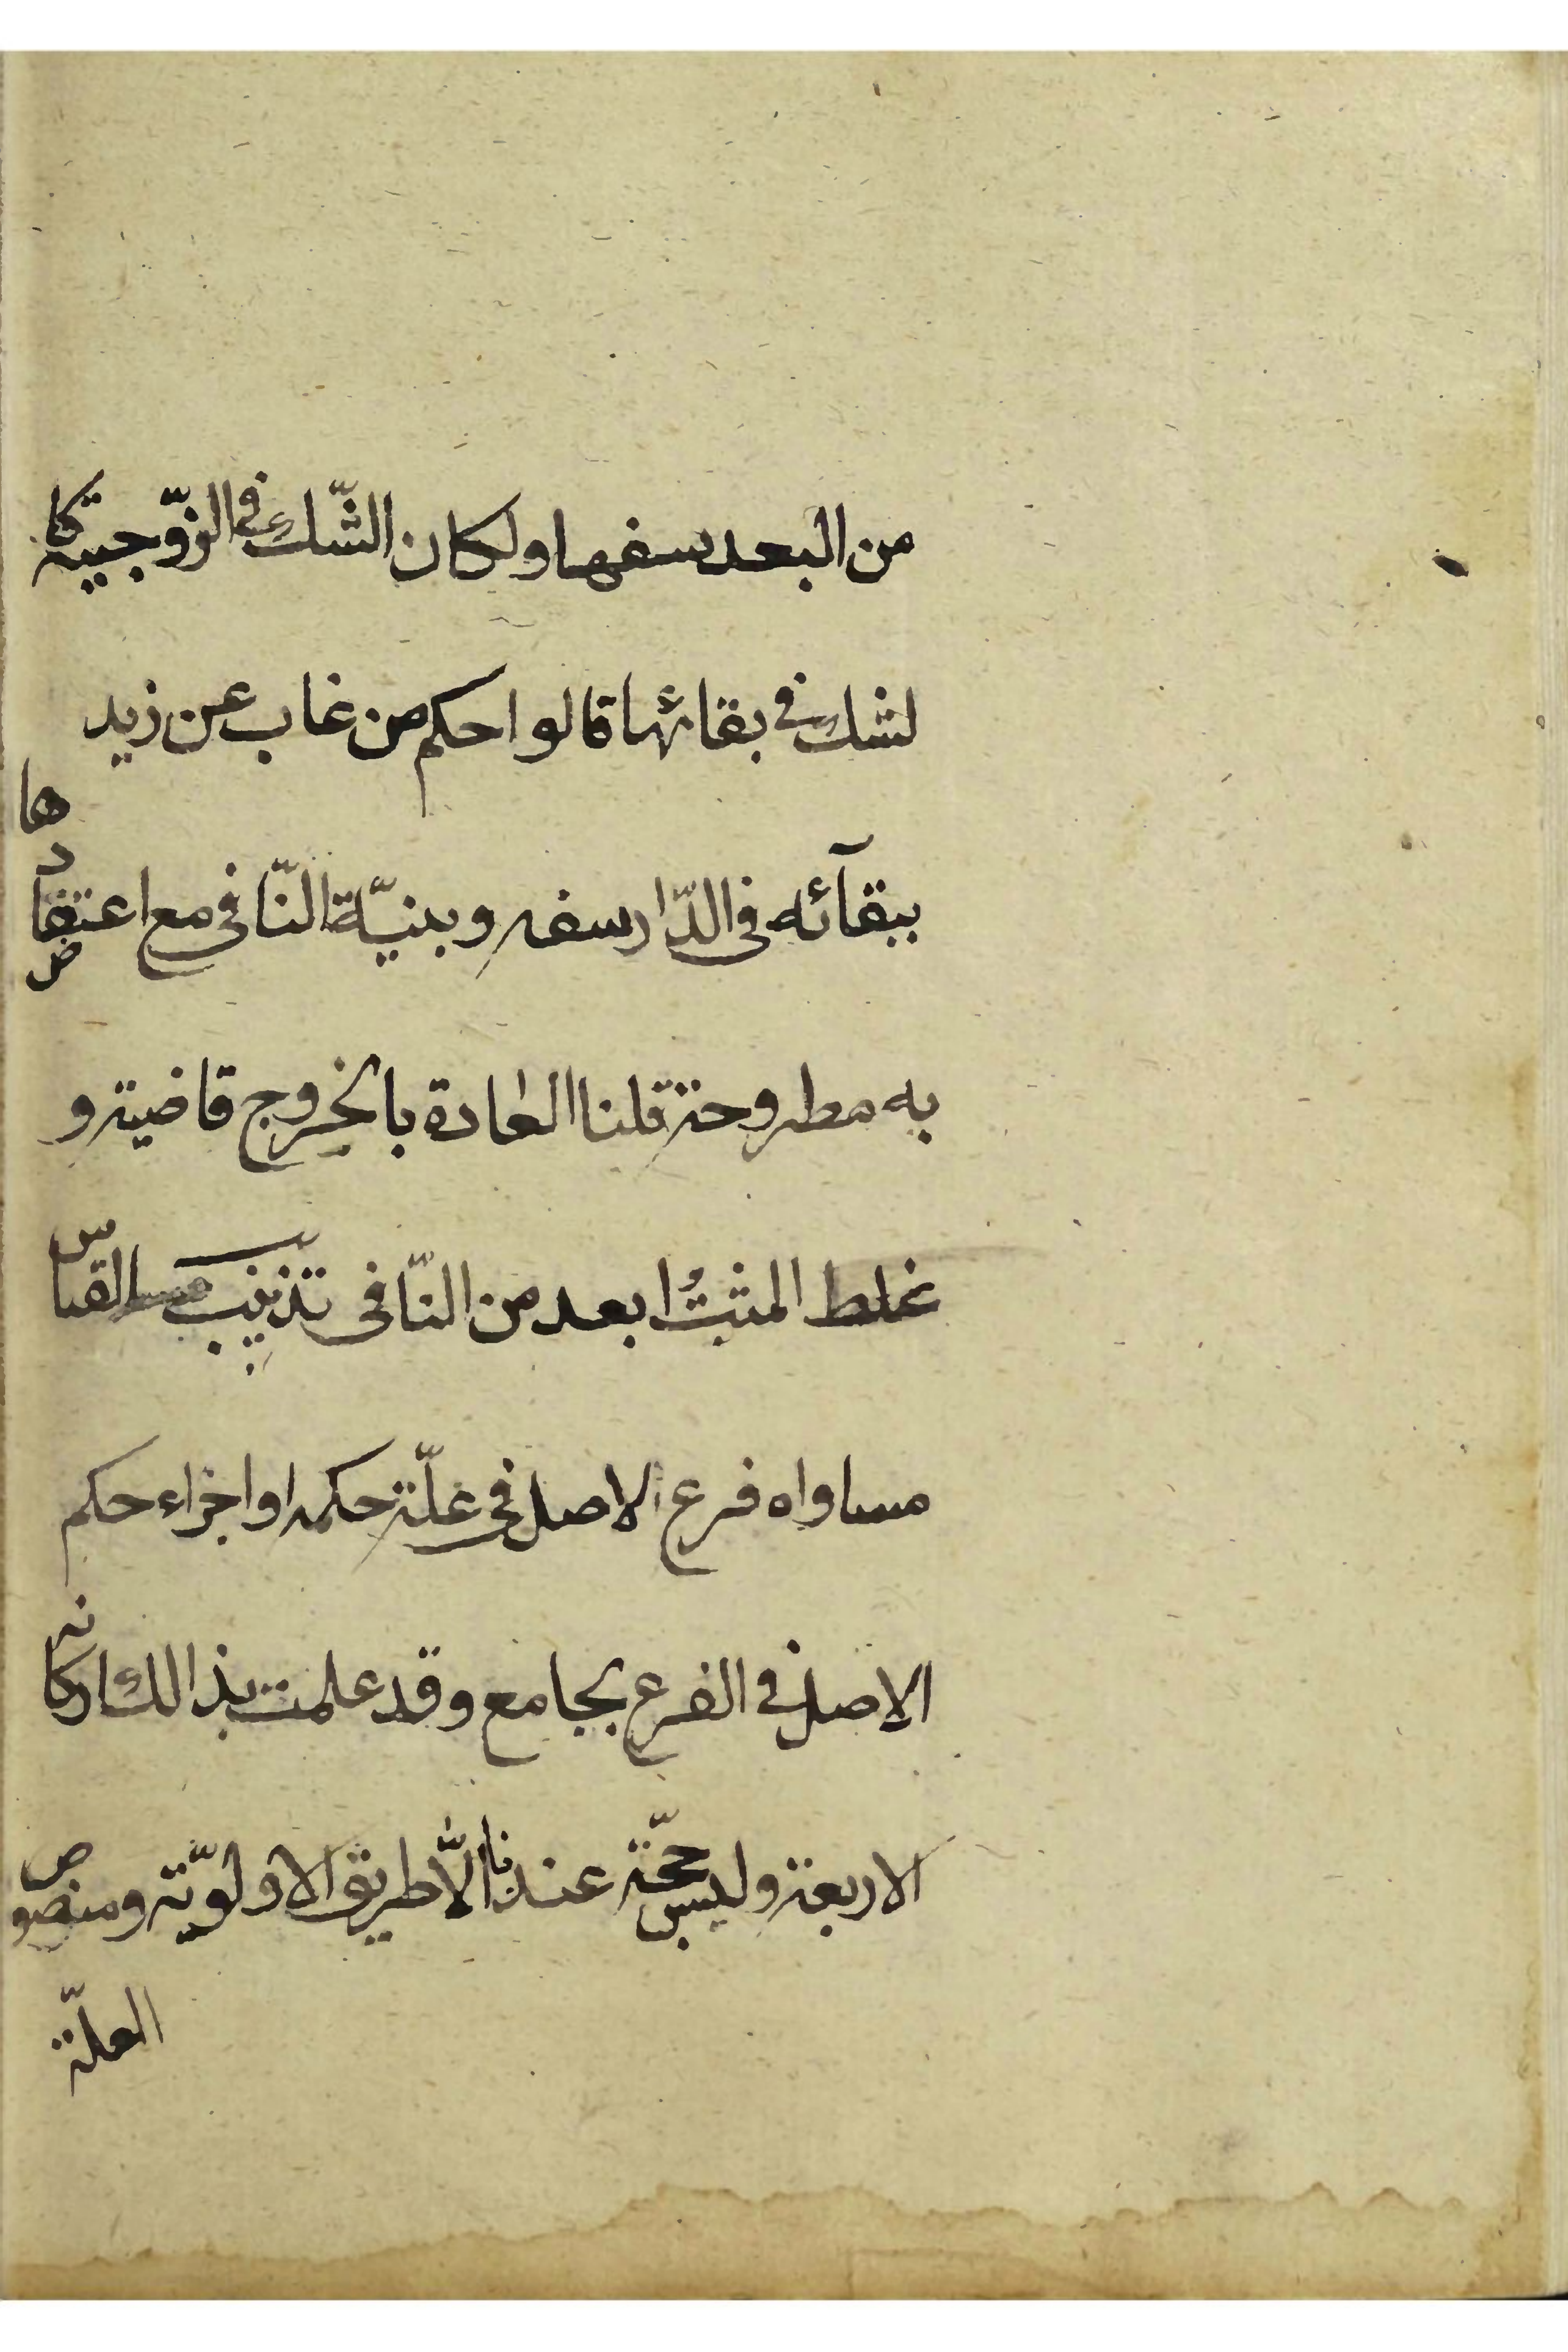 من البعد سفها ولكان الشّك فى الزّوجيّة كا
لشك فى بقائها قالوا حكم من غاب عن زيد
ببقآئه فى الدّار سفه وبنيّة النّافى مع اعتقادها ص
به مطروحة قلنا العادة بالخروج قاضية و
غلط المثبت ابعد من النّافى تذنيب القياس
مساواه فرع الاصل فى علّة حكمه او اجزاء حكم
الاصل فى الفرع بجامع وقد علمت بذالك اركانه
الاربعة وليس حجّة عندنا الّا طريق الاولويّة ومنصوص
العلّة